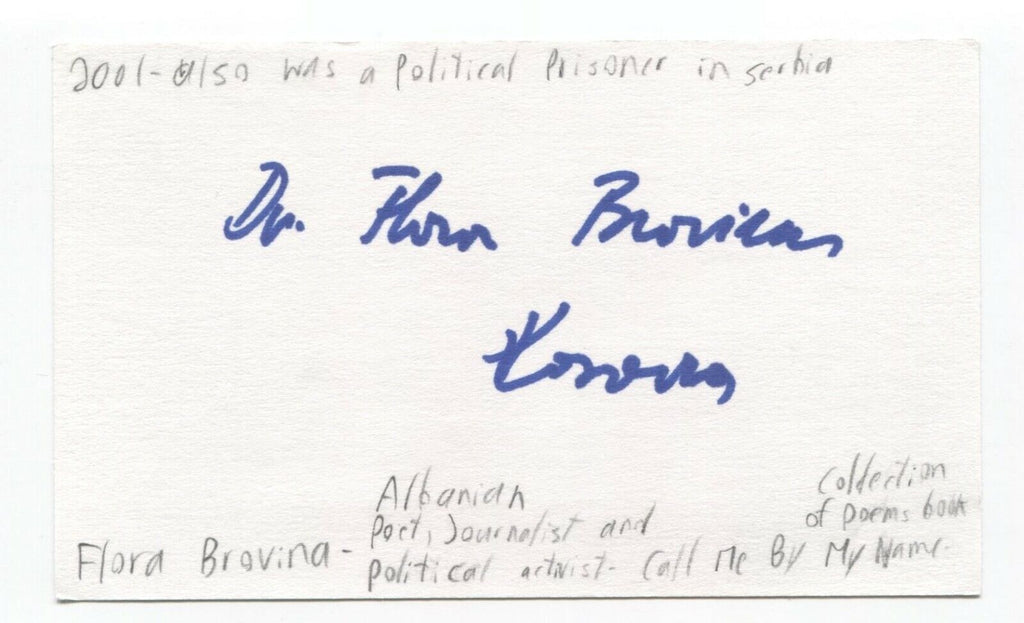 2001- also was a Political Prisoner in serbia
Dr. Flora Brovina
Kosova
Albanian
Poet, Journalist and
Flora Brovina - political activist- Call Me By My Name-
Collection
of poems book